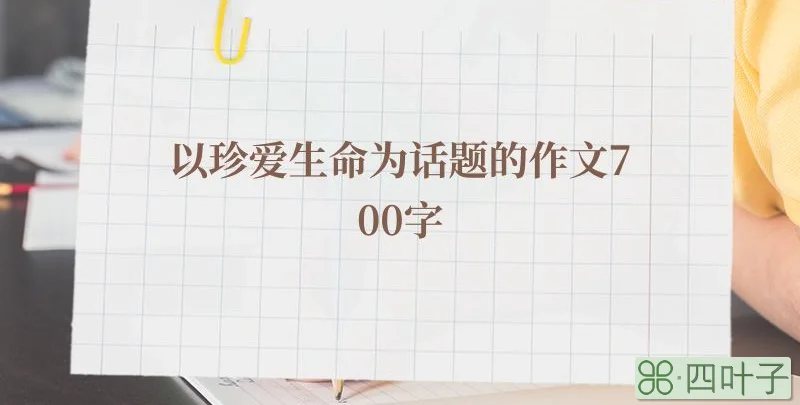 以珍爱生命为话题的作文7
00字
四叶子